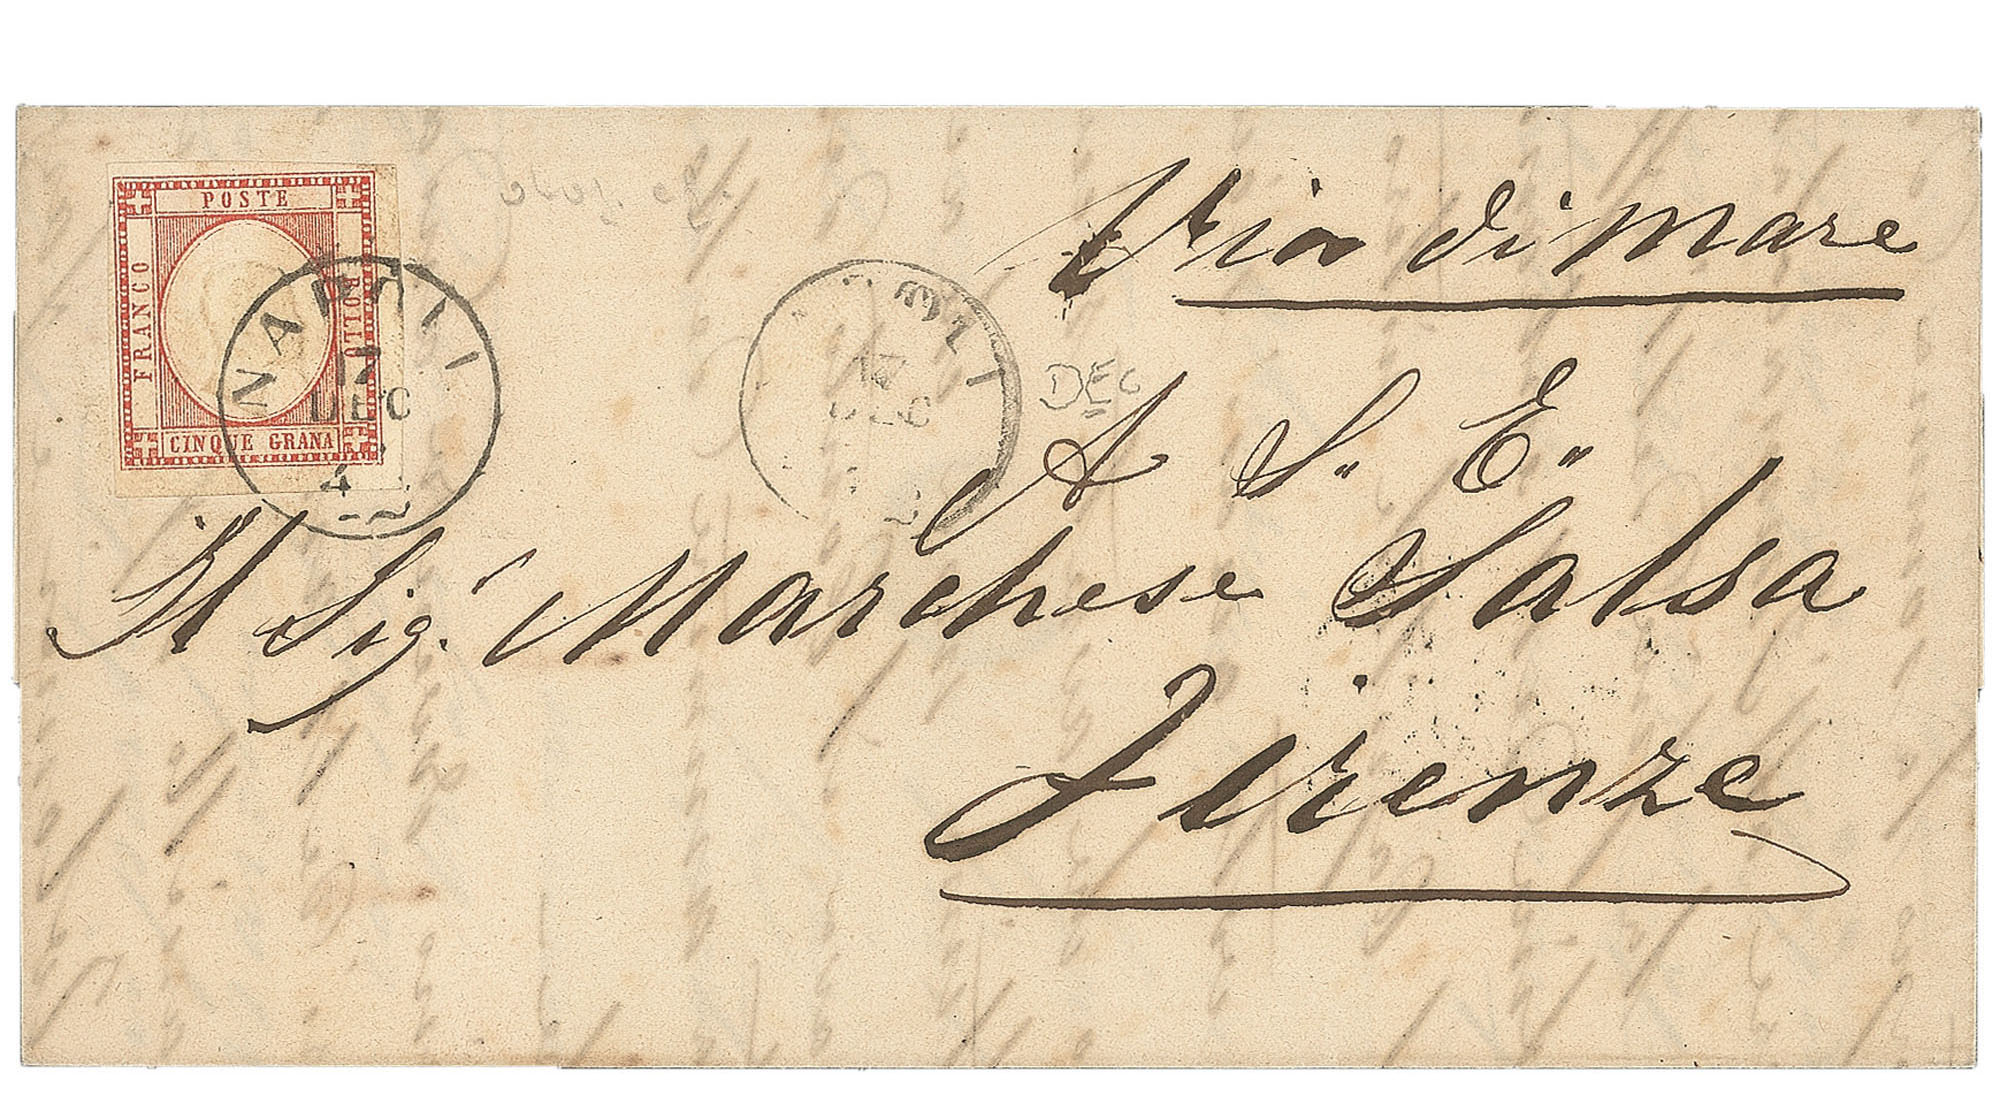 POSTE
FRANCO
BOLLO
CINQUE GRANA
NAPOLI
17
DEC
4
Via di mare
17
DEC
DEC
A S. E.
Al Sig. Marchese Salsa
Firenze